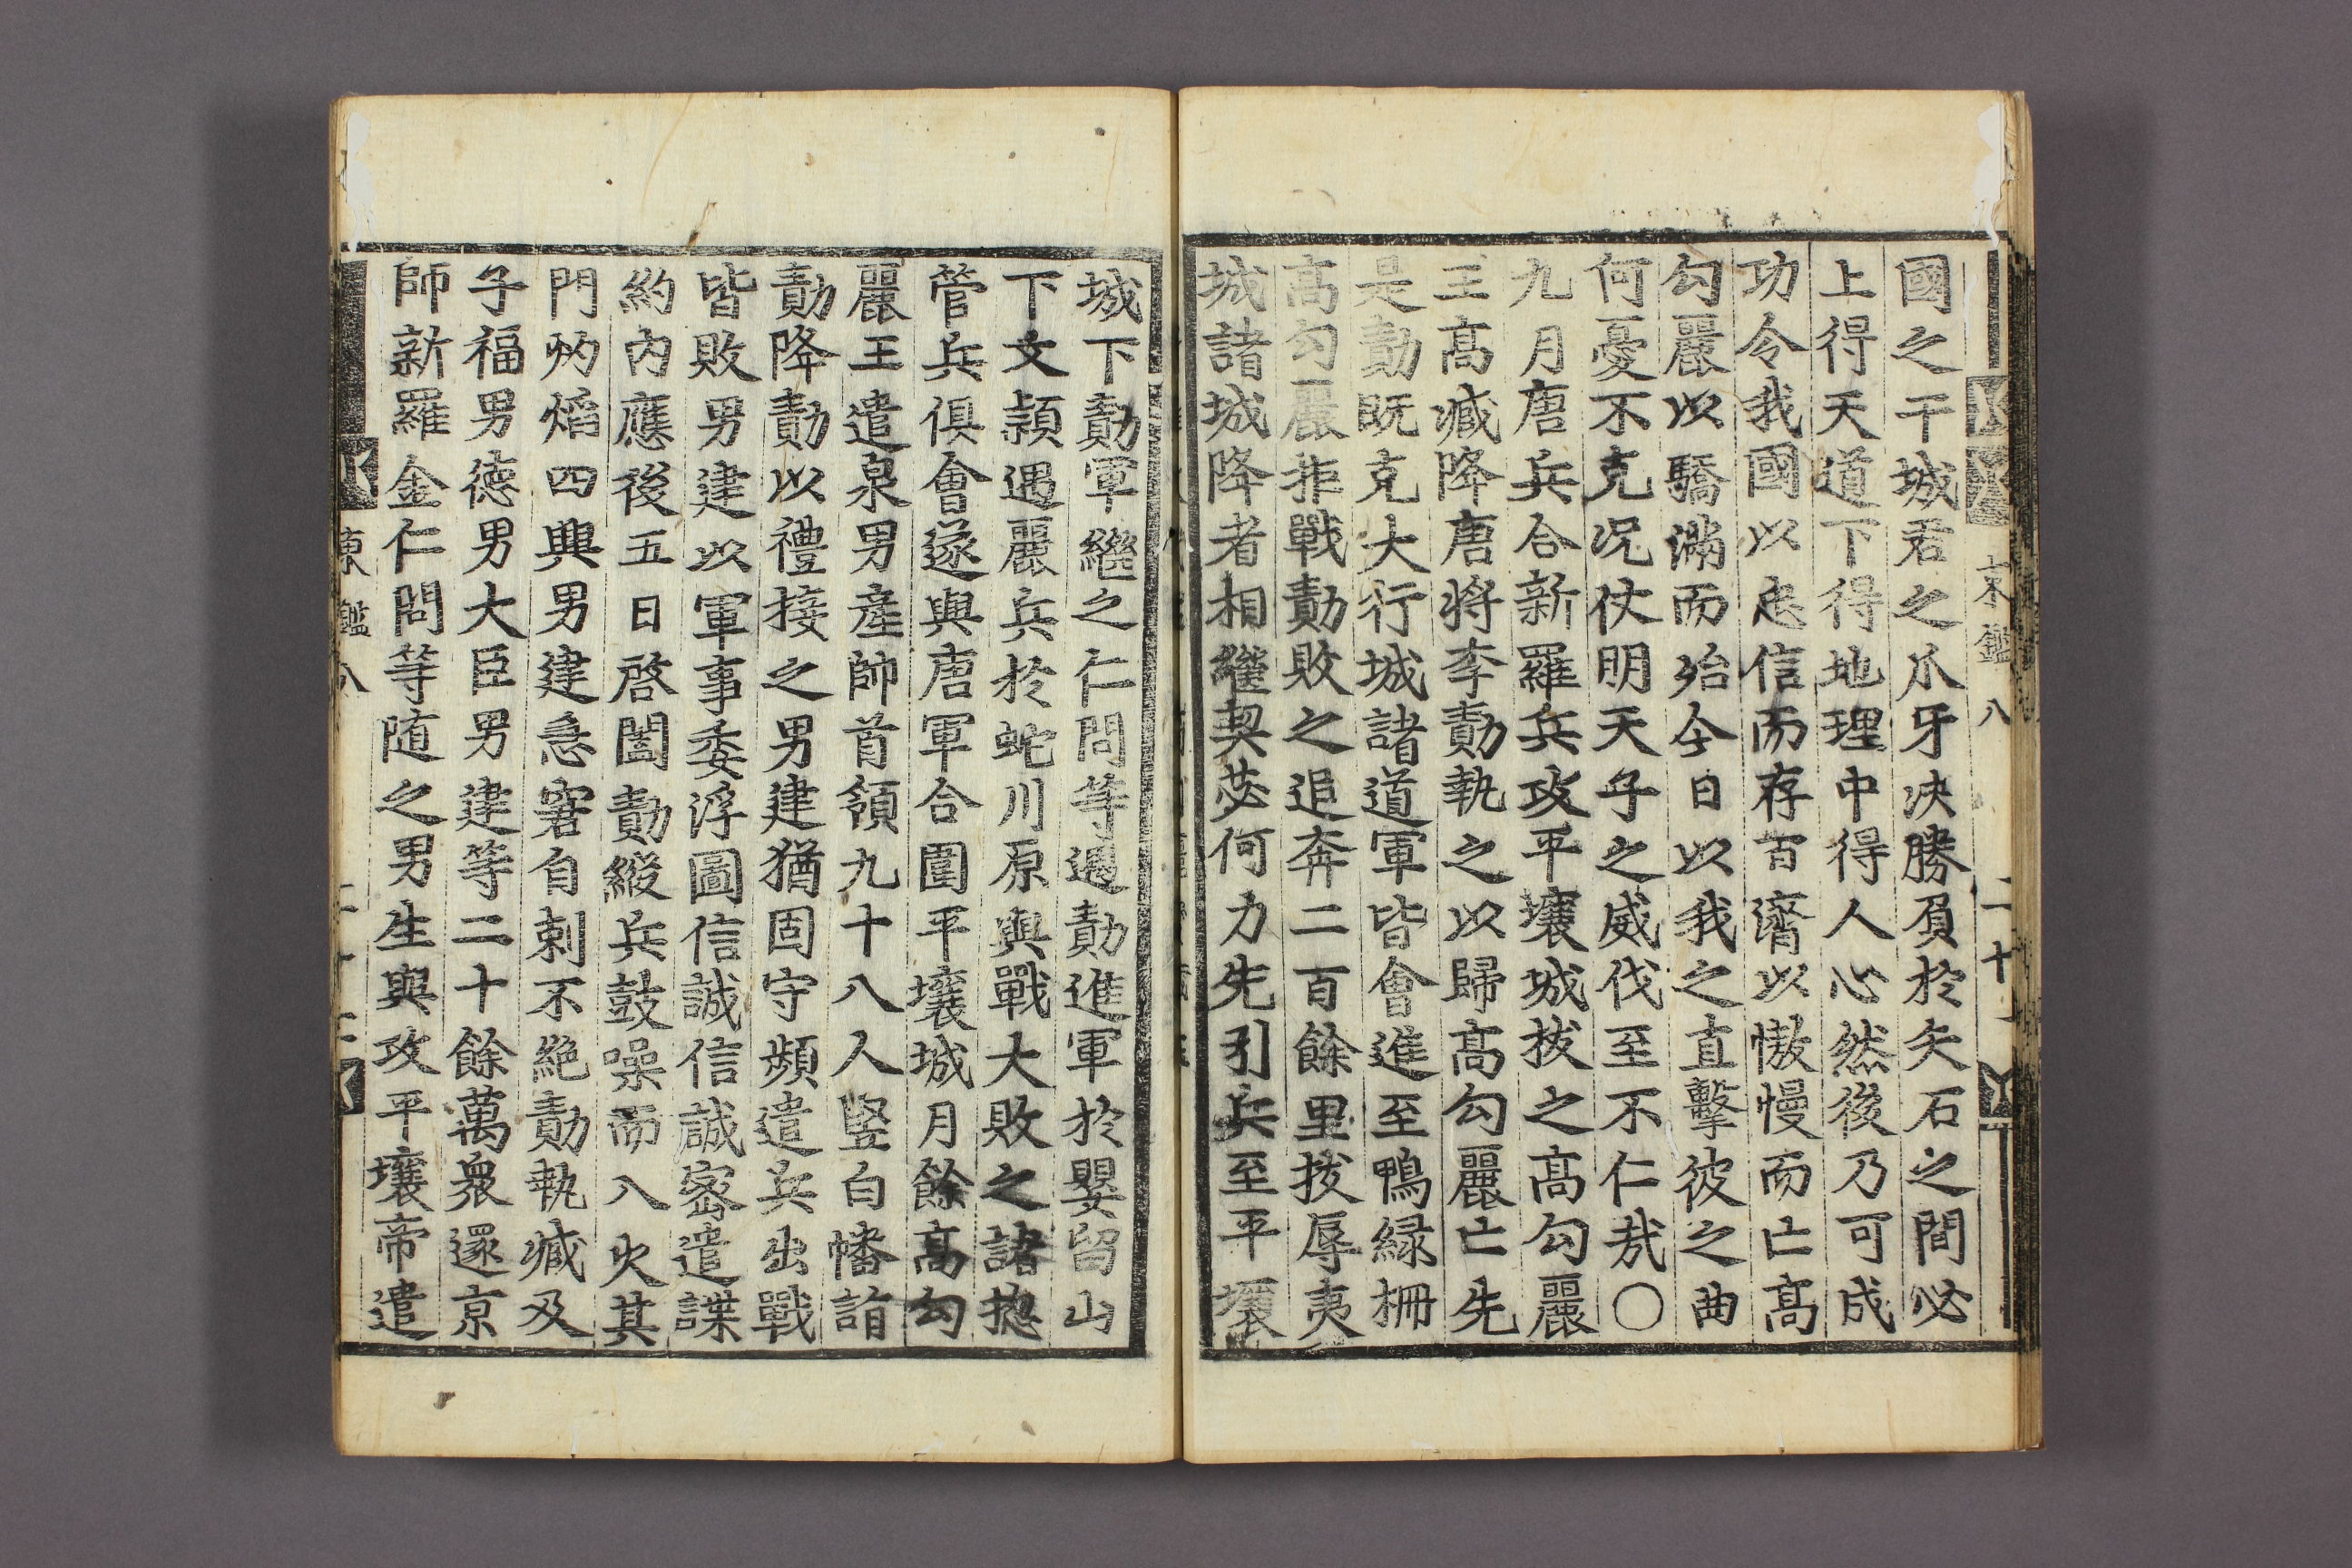 東鑑 八 二十
國之干城君之爪牙决勝負於矢石之間必
上得天道下得地理中得人心然後乃可成
功今我國以忠信而存百濟以慠慢而亡髙
勾麗以驕滿而殆今日以我之直擊彼之曲
何憂不克况仗明天子之威伐至不仁㢤〇
九月唐兵合新羅兵攻平壤城拔之髙勾麗
王髙臧降唐將李勣執之以歸髙勾麗亡先
是勣既克大行城諸道軍皆會進至鴨緑柵
髙勾麗拒戰勣敗之追奔二百餘里拔辱夷
城諸城降者相繼契苾何力先引兵至平壤
城下勣軍繼之仁問等遇勣進軍於嬰留山
下文頴遇麗兵於蛇川原與戰大敗之諸揔
管兵俱會遂與唐軍合圍平壤城月餘髙勾
麗王遣泉男產帥首領九十八人竪白幡詣
勣降勣以禮接之男建猶固守頻遣兵出戰
皆敗男建以軍事委浮圖信誠信誠密遣諜
約内應後五日啓闔勣縱兵鼓噪而入火其
門炳熖四興男建急窘自刺不絶勣執臧及
子福男德男大臣男建等二十餘萬衆還京
師新羅金仁問等随之男生與攻平壤帝遣
東鑑八